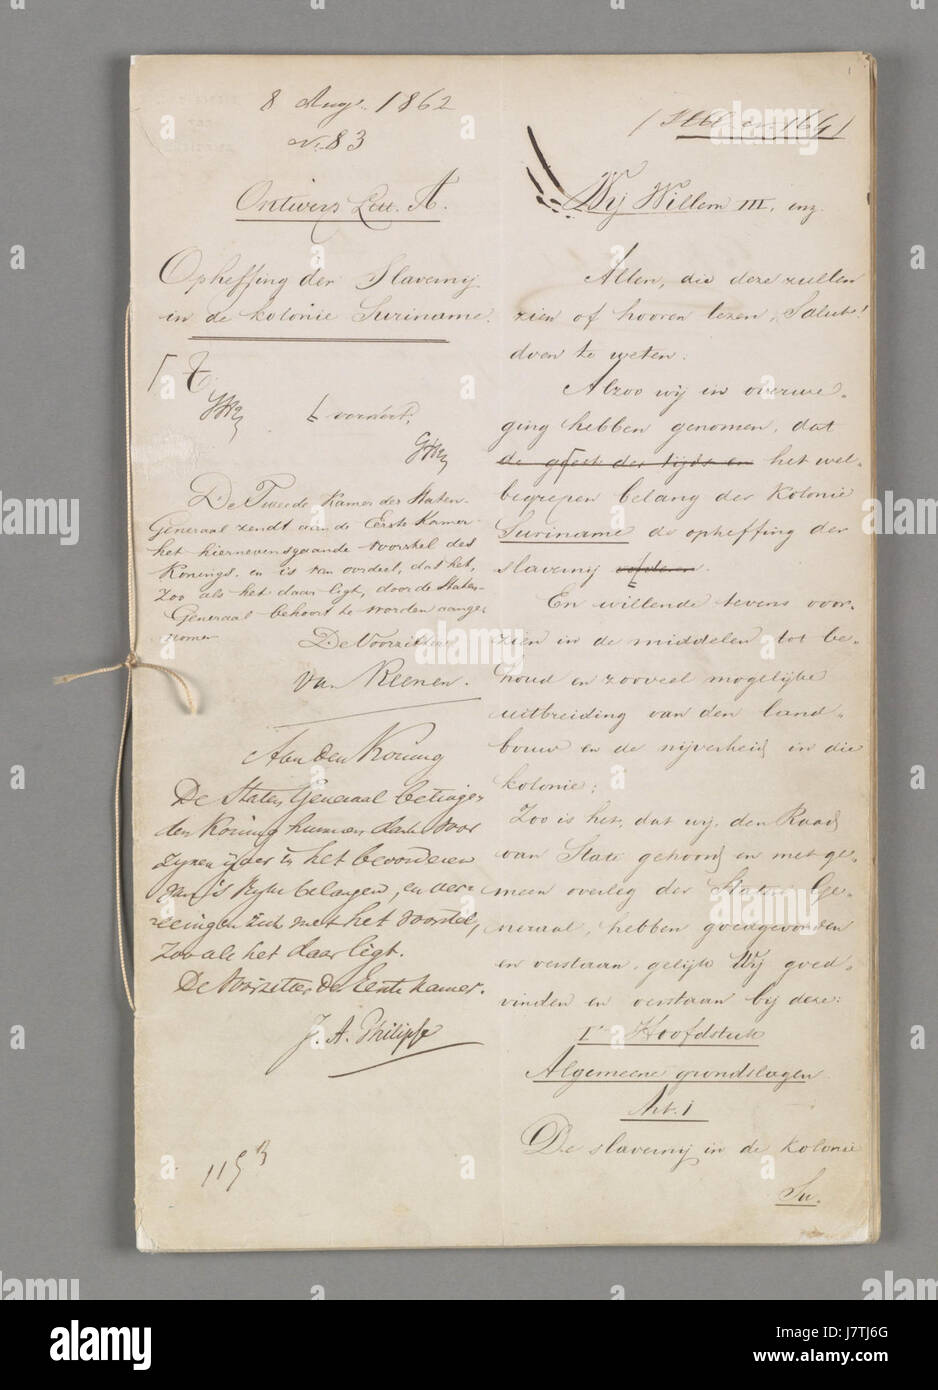 8 Aug. 1862
No 83
Ontwerp Lett. A.
Opheffing der Slavernij
in de kolonie Suriname.
[ t
t vernort,
De Tweede Kamer der Staten-
Generaal zendt aan de Eerste Kamer
het hiernevensgaande voorstel des
Konings, en is van oordeel, dat het,
zoo als het daar ligt, door de Staten-
Generaal behoort te worden aange-
nomen
De Voorzitter
van Reenen.
Aan den Koning
De Staten Generaal betuigen
den Koning hunnen dank voor
zijnen ijver in het bevorderen
van 's Rijks belangen, en vere-
eenigen zich met het voorstel,
zoo als het daar ligt.
De Voorzitter der Eerste Kamer.
J. A. Philipse
115 B
( Stbl. no. 164 )
Wij Willem III, enz.
Allen, die deze zullen
zien of hooren lezen, Salut!
doen te weten:
Alzoo wij in overwe-
ging hebben genomen, dat
de geest des tijds en het wel-
begrepen belang der Kolonie
Suriname de opheffing der
slavernij vorderen.
En willende tevens voor-
zien in de middelen tot be-
houd en zooveel mogelijke
uitbreiding van den land-
bouw en de nijverheid in die
kolonie;
Zoo is het, dat wij, den Raad
van State gehoord en met ge-
meen overleg der Staten Ge-
neraal, hebben goedgevonden
en verstaan, gelijk Wij goed-
vinden en verstaan bij deze:
1e Hoofdstuk
Algemeene grondslagen
Art. 1
De slavernij in de kolonie
Su.
alamy
alamy
alamy
a
a
a
alamy
Image ID: J7TJ6G
www.alamy.com